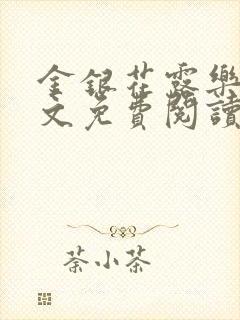 金銀花露樂
文免費閱讀
荼小茶